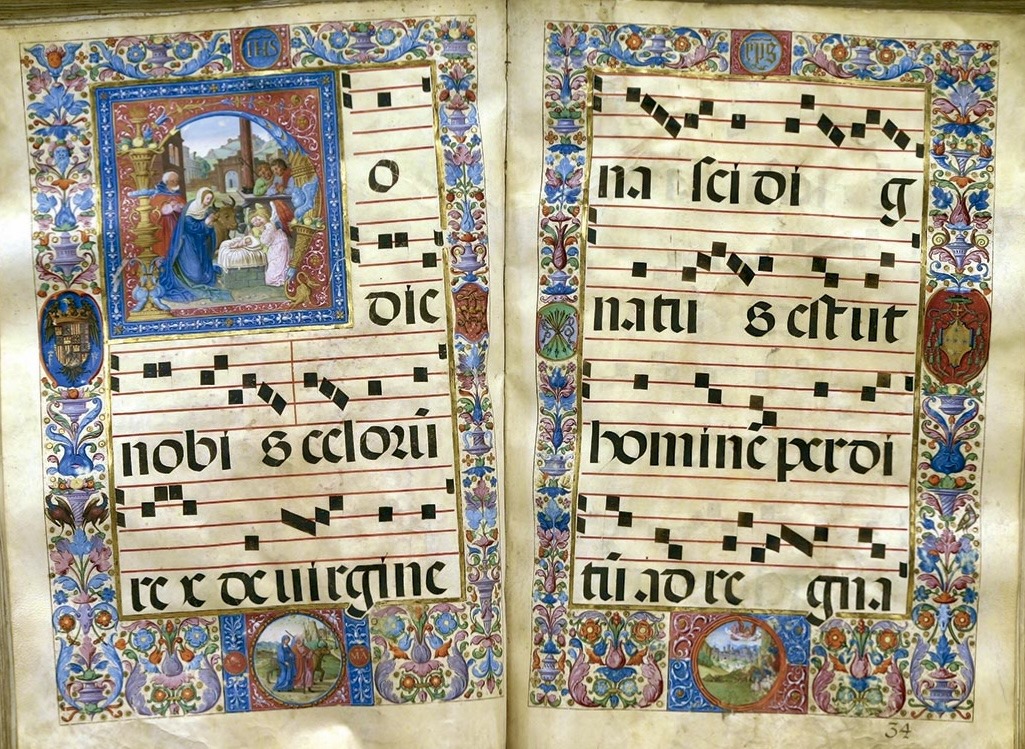 IHS
o
die
nobi s celorũ
re x de uirgine
na sci di g
natu s est ut
hominẽ perdi
tũ ad re gna
34